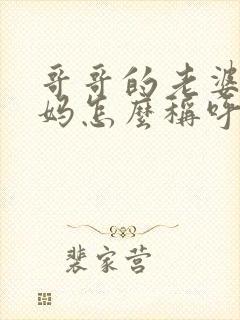 哥哥的老婆
妈怎麼稱呼
裴家营